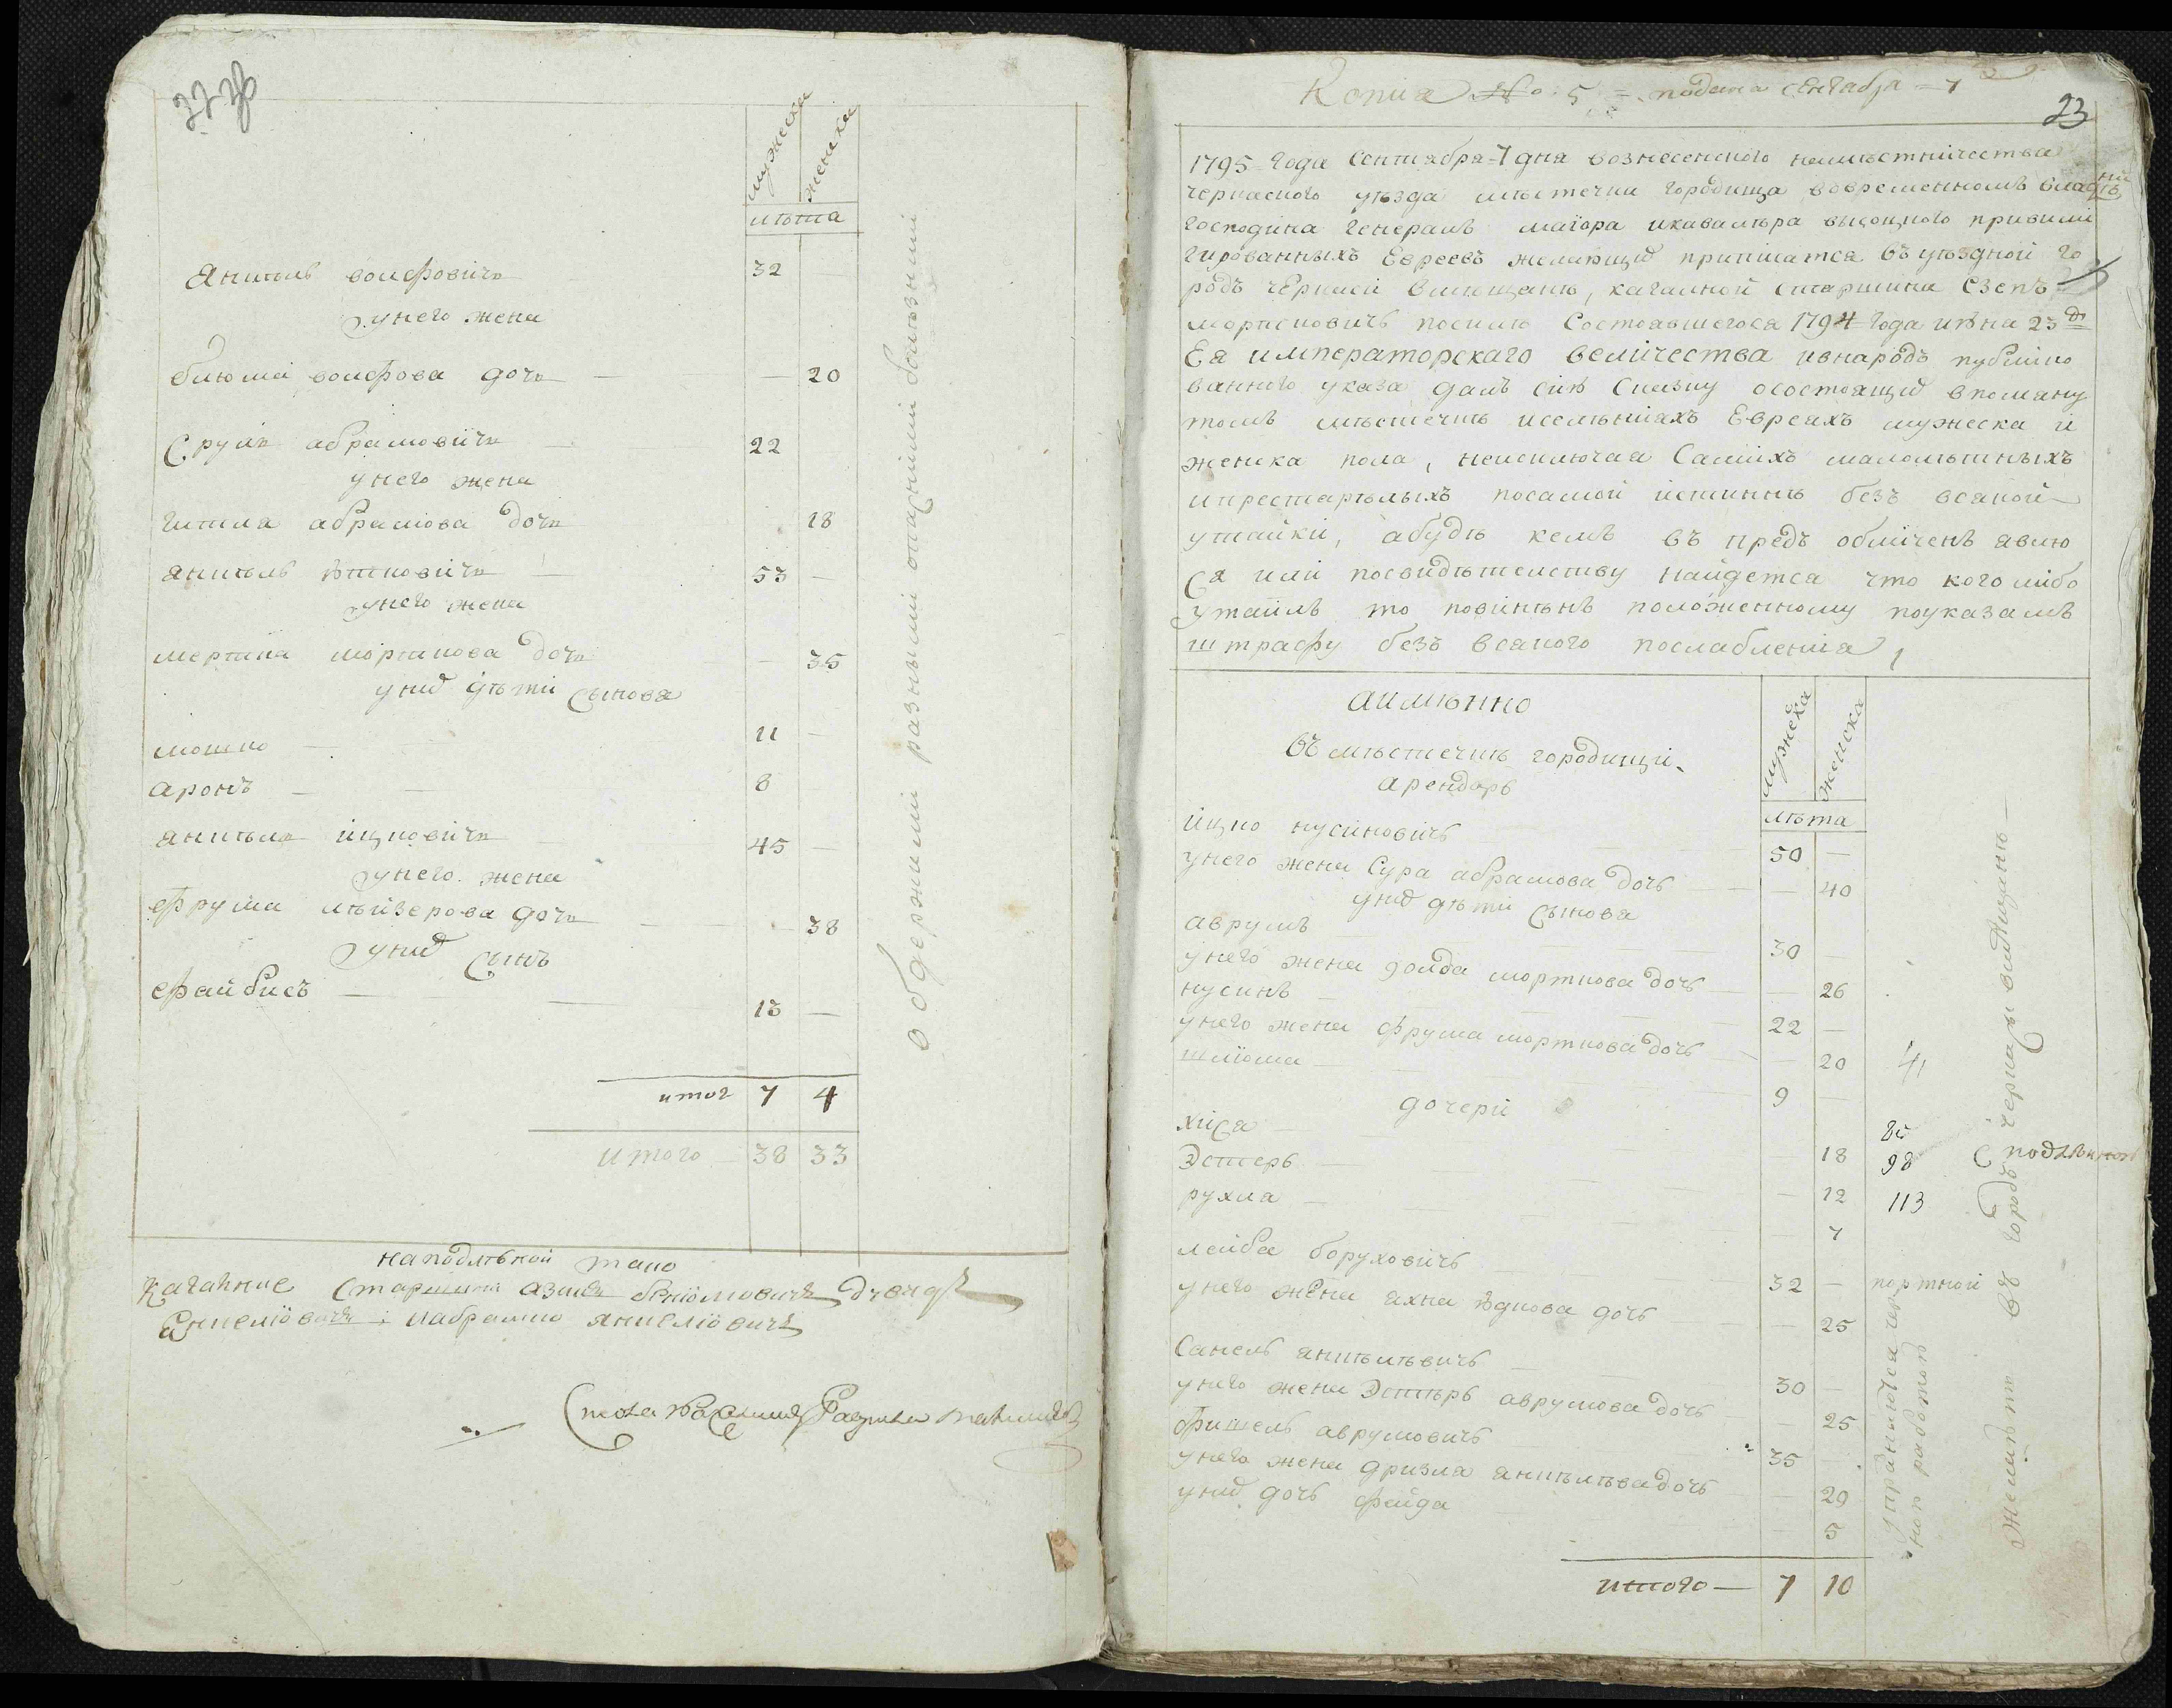 мужеска женска
лѣта
Янкель волфовичъ 32
у него жена
блюма волфова дочь — — 20
Сруль абрамовичъ — 22
у него жена
гитля абрамова дочь 18
янкель — 53 —
у него жена
морткова дочь — 35
у них дѣти сынова
мошко — — 11 —
аронъ — — 8
янкель ицковичъ — 45 —
у него жена
фрума лѣйзерова дочь — — 38
у них сынъ
файбисъ — — 13 —
итог 7 4
итого — 38 33
одержими разными болѣзнми
на подлѣной тако
Кагалние Старшини
янкелïовичъ
Копия № 5 = подана сентабра — 7
23
1795 года Сентлабра 7 дня вознесенского намѣстничества
черкаского уѣзда мѣстечки городища вовременномъ владѣнïи
господина генералъ маïора икавалѣра высоцкого привили
гированныхъ Евреевъ желающих приписатся въ уѣздной го
родъ черкаси вмещане, кагалной старшина Єзепъ
мортковичъ посилѣ Состоявшегося 1794 года июна 23 д
Ея императорскаго величества ивнародъ публико
ванного указа далъ сию Сказку осостоящих впомяну
томъ мѣстечкѣ иселѣнïяхъ Евреяхъ мужеска и
женска пола, неисключая Самихъ малолѣтныхъ
ипрестарѣлыхъ посамой истиннѣ безъ всякой
утайки, абудѣ кемъ въ предъ обличенъ явлю
ся или посвидѣтелству найдется что кого либо
утаилъ то повинѣнъ положенному поуказамъ
штрафу безъ всякого послабленïя,
аимѣнно
въ мѣстечкѣ городищи
арендаръ
мужеска женска
лѣта
ицко нусиновичъ 50 —
у него жена Сура абрамова дочь — 40
у них дѣти сынова
аврумъ 30
у него жена голда морткова дочь — 26
нусинъ — 22 —
у него жена фрума морткова дочь — 20
шлïома — 9 —
дочери
хïся — 18
Эстеръ — 12
рухля — 7
лейба боруховичъ 32 —
у него жена яхна дочь — 25
Санель янкѣлѣвичъ — 30 —
у него жена Эстѣръ аврумова дочь — 25
фишель аврумовичъ 35
у него жена дризля янкѣлѣва дочь — 29
у них дочь фейга 5
итого — 7 10
41
98
113
портной
упражнается чер
ной работой
желаютъ въ городъ черкасы вмещане —
С подлѣнном